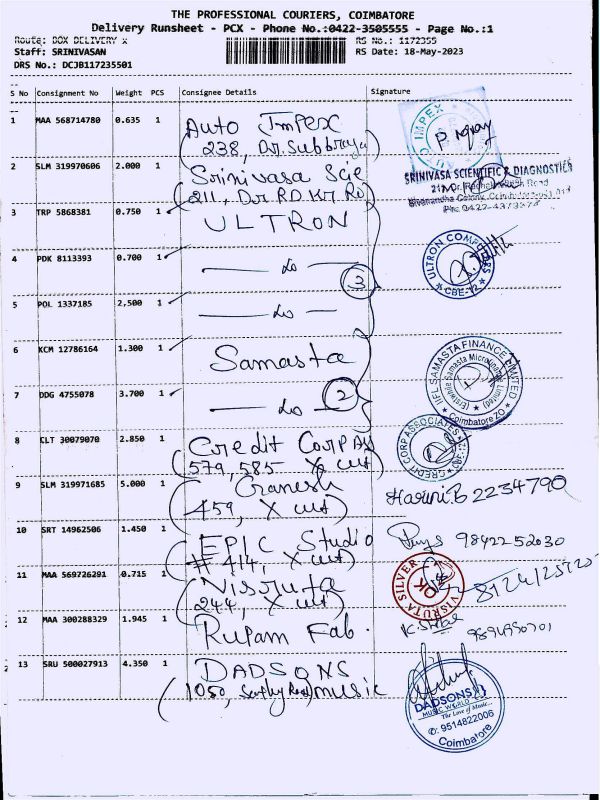 THE PROFESSIONAL COURIERS, COIMBATORE
Delivery Runsheet - PCX - Phone No.:0422-3505555 - Page No.:1
Route: BOX DELIVERY x RS No.: 1172355
Staff: SRINIVASAN RS Date: 18-May-2023
DRS No.: DCJB117235501
S No Consignment No Weight PCS Consignee Details Signature
1 MAA 568714780 0.635 1 Auto Impex
(238, Dr. Subbraya)
AUTO IMPEX
2 SLM 319970606 2.000 1 Srinivasa Scie
(211, Dr. RD KT Rd)
SRINIVASA SCIENTIFIC & DIAGNOSTICS
3 TRP 5868381 0.750 1 ULTRON
4 PDK 8113393 0.700 1 — do —
ULTRON COMPUTERS
* CBE-12 *
3
5 POL 1337185 2,500 1 — do —
6 KCM 12786164 1.300 1 Samasta
IIFL SAMASTA FINANCE LIMITED
(Erstwhile Samasta Microfinance Limited)
Coimbatore ZO
7 DDG 4755078 3.700 1 — do —
2
8 CLT 30079070 2.850 1 Credit Corp As
(579, 585 X cut)
CREDIT CORP ASSOCIATES
9 SLM 319971685 5.000 1 Ganesh
(459, X cut)
Harini.B 2234790
10 SRT 14962506 1.450 1 EPIC Studio
(# 414, X cut)
9842252030
11 MAA 569726291 0.715 1 Visruta
(244, X cut)
VISRUTA SILVER
12 MAA 300288329 1.945 1 Rupam Fab.
13 SRU 500027913 4.350 1 DADSONS
(1050, music
DADSONS
MUSIC WORLD
The Love of Music...
✆: 9514822006
Coimbatore